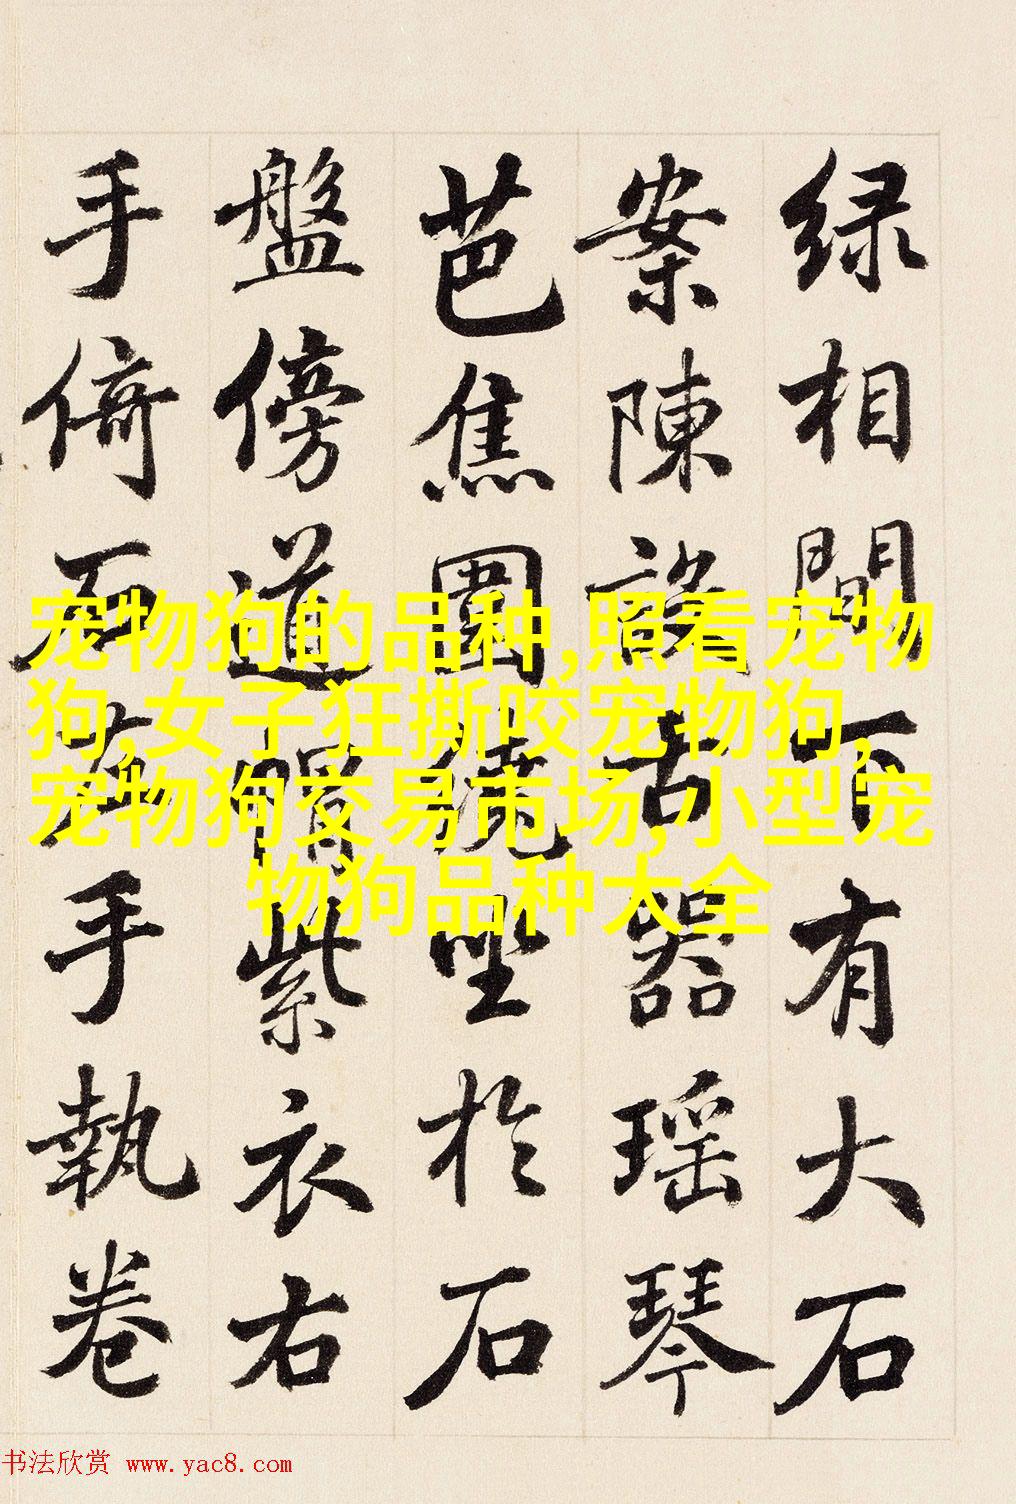 绿相間下有大石
案陳設古器瑶琴
芭焦圍繞坐於石
盤傍道帽紫衣右
手倚石左手執卷
宠物狗的品种,照看宠物
狗,女子狂撕咬宠物狗,
宠物狗交易市场,小型宠
物狗品种大全
书法欣赏 www.yac8.com